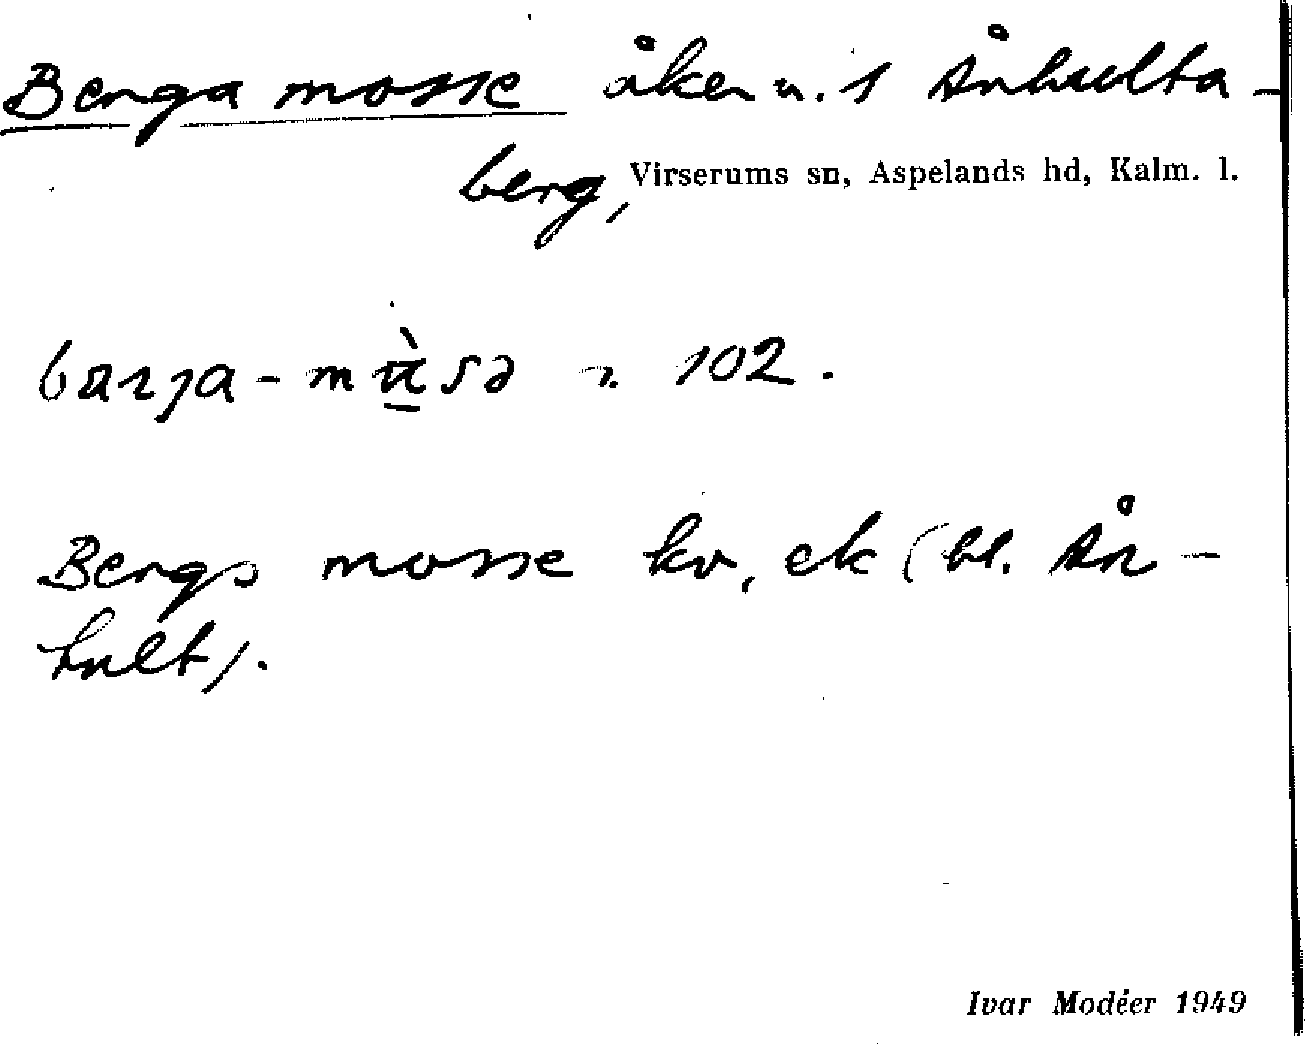 Berga mosse åker n. 1 Århulta-
berg, Virserums sn, Aspelands hd, Kalm. l.
102.
Bergs mosse kv, ek (bl. År-
hult).
Ivar Modéer 1949